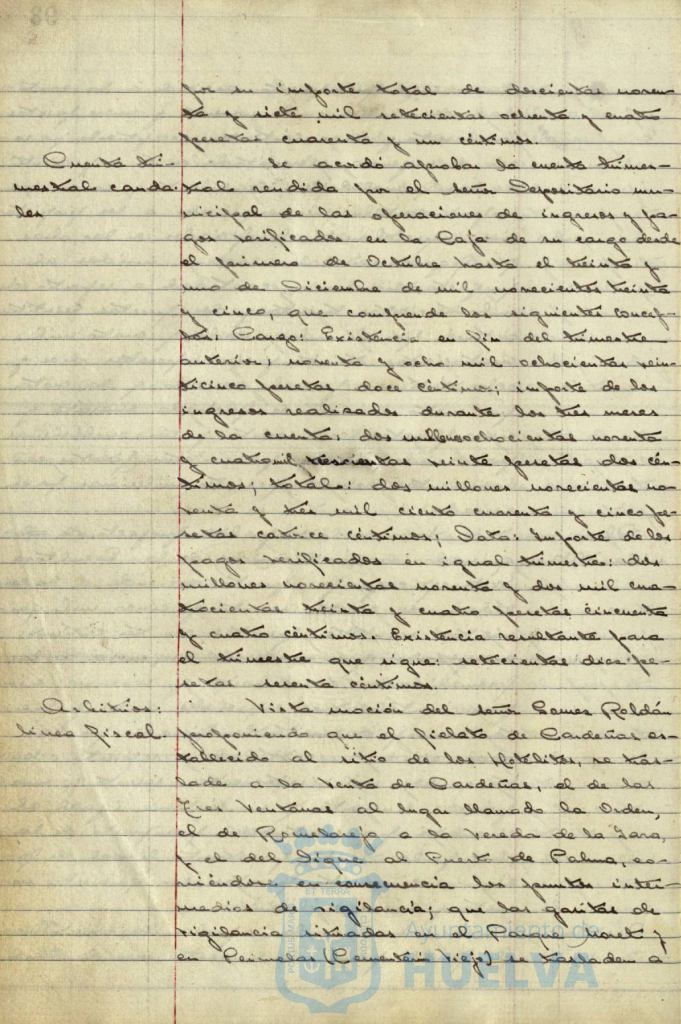 por su importe total de doscientas noven-
ta y siete mil setecientas ochenta y cuatro
pesetas cuarenta y un céntimos.
Cuenta tri-
mestral cauda-
les
Se acordó aprobar la cuenta trimes-
tral rendida por el señor Depositario mu-
nicipal de las operaciones de ingresos y pa-
gos verificados en la Caja de su cargo desde
el primero de Octubre hasta el treinta y
uno de Diciembre de mil novecientos treinta
y cinco, que comprende los siguientes concep-
tos: Cargo: Existencia en fin del trimestre
anterior, noventa y ocho mil ochocientas vein-
ticinco pesetas doce céntimos; importe de los
ingresos realizados durante los tres meses
de la cuenta, dos millones ochocientas noventa
y cuatro mil trescientas veinte pesetas dos cén-
timos; total: dos millones novecientas no-
venta y tres mil ciento cuarenta y cinco pe-
setas catorce céntimos; Data: Importe de los
pagos verificados en igual trimestre: dos
millones novecientas noventa y dos mil cua-
trocientas treinta y cuatro pesetas cincuenta
y cuatro céntimos. Existencia resultante para
el trimestre que sigue: setecientas diez pe-
setas sesenta céntimos.
Arbitrios:
línea fiscal.
Vista moción del señor Gomez Roldán
proponiendo que el fielato de Cardeñas es-
tablecido al sitio de los Hotelitos, se tras-
lade a la Venta de Cardeñas, el de las
Tres Ventanas al lugar llamado la Orden,
el de a la Vereda de la
y el del Dique al Puerto de Palma, co-
rriéndose en consecuencia los puntos inter-
medios de vigilancia; que las garitas de
vigilancia situadas en el Parque Moret y
en (Cementerio Viejo) se trasladen a
Ayuntamiento de
HUELVA